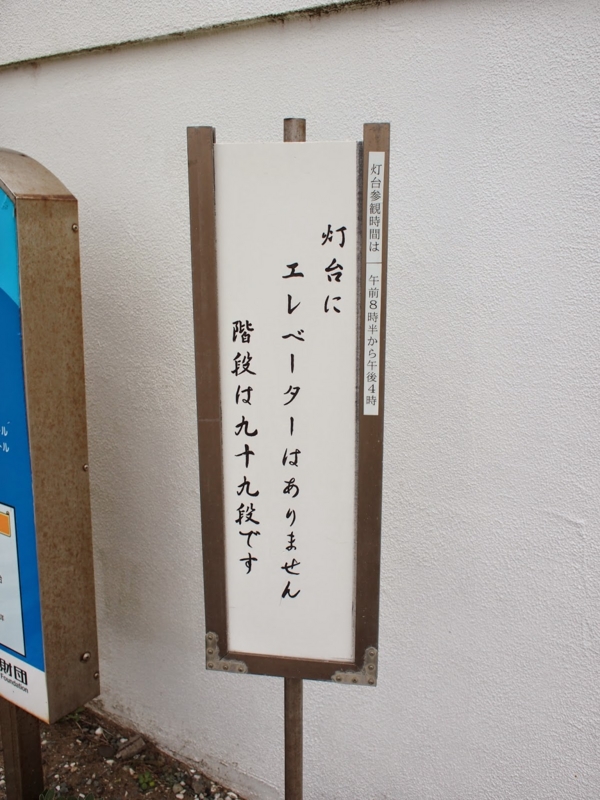 灯台参観時間は 午前8時半から午後4時
灯台に
エレベーターはありません
階段は九十九段です
ル
ール
財団
Foundation